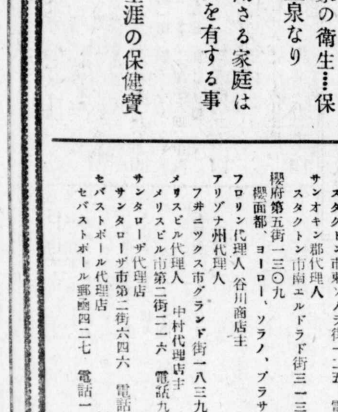 の衛生……保
泉なり
さる家庭は
を有する事
涯の保健寶
サンオキン郡代理人
スタクトン市南エルドラド街三一三
櫻府第五街一三〇九
櫻面都、ヨーロー、ソラノ、プラサ
フロリン代理人 谷川商店主
アリゾナ州代理人
フ井ニツクス市グランド街一八三九
メリスビル代理人 中村代理店主
メリスビル市第二街二一六 電話九
サンタローザ代理店
サンタローザ市第二街六四六 電話
セバストポール代理店
セバストポール郵凾四二七 電話一